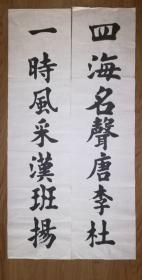 四海名聲唐李杜
一時風采漢班揚